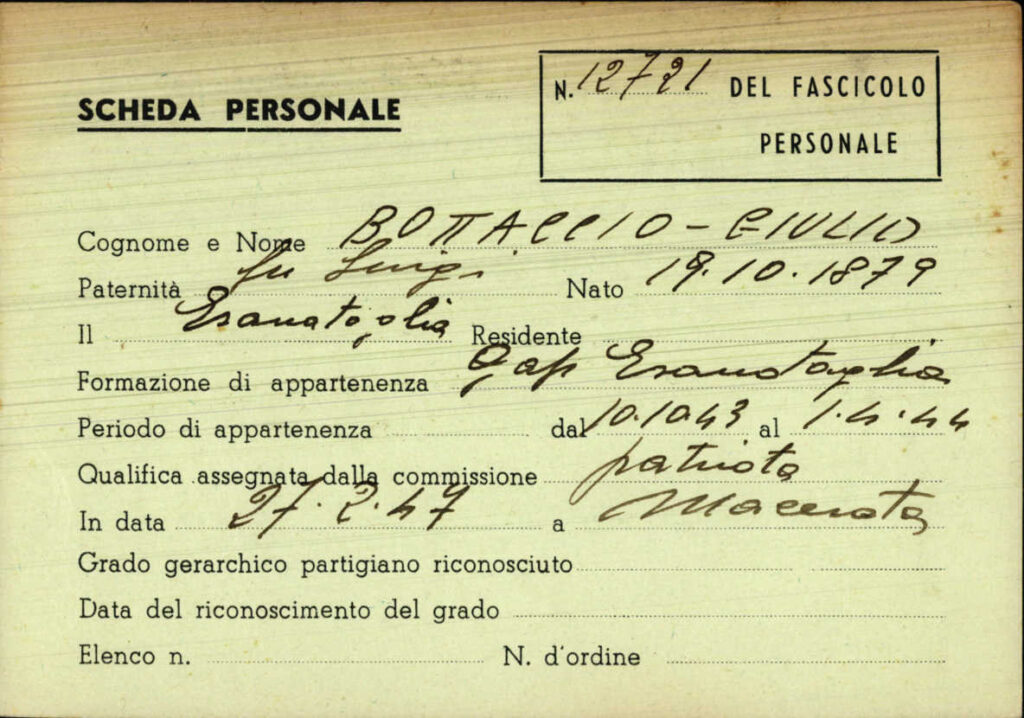 SCHEDA PERSONALE
N. 12721 DEL FASCICOLO
PERSONALE
Cognome e Nome BOTTACCIO - GIULIO
Paternità fu Luigi Nato 19.10.1879
Il Esanatoglia Residente
Formazione di appartenenza Gap Esanatoglia
Periodo di appartenenza dal 10.10.43 al 1.4.44
Qualifica assegnata dalla commissione patriota
In data 27.2.47 a Macerata
Grado gerarchico partigiano riconosciuto
Data del riconoscimento del grado
Elenco n. N. d'ordine